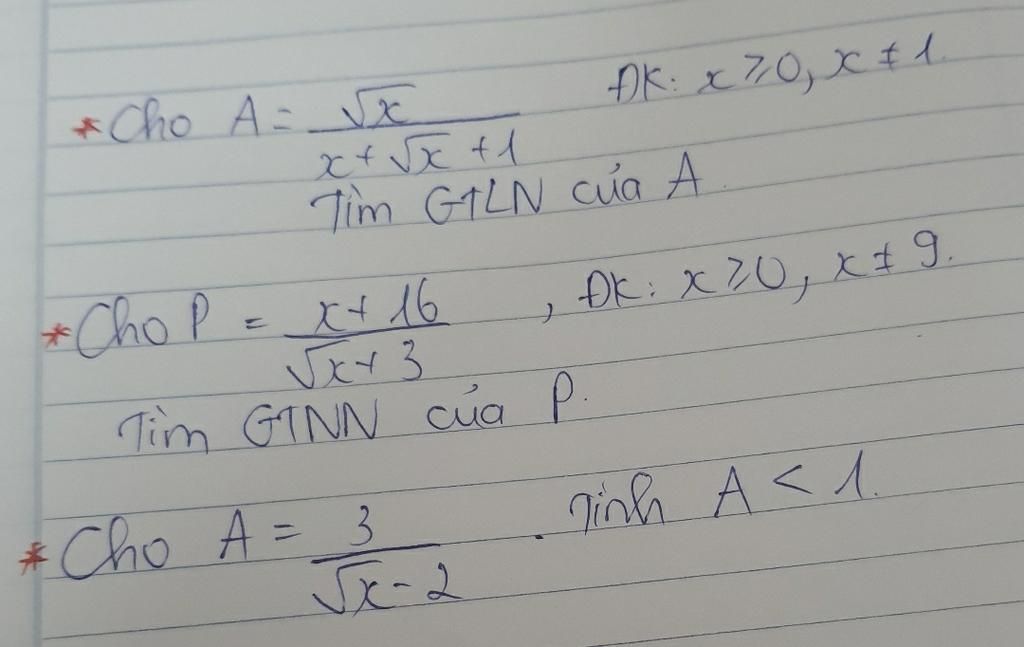 * Cho A = √x / (x + √x + 1) ĐK: x ⩾ 0, x ≠ 1.
Tìm GTLN của A.
* Cho P = (x + 16) / (√x + 3) , ĐK: x ⩾ 0, x ≠ 9.
Tìm GTNN của P.
* Cho A = 3 / (√x - 2) . Tính A < 1.